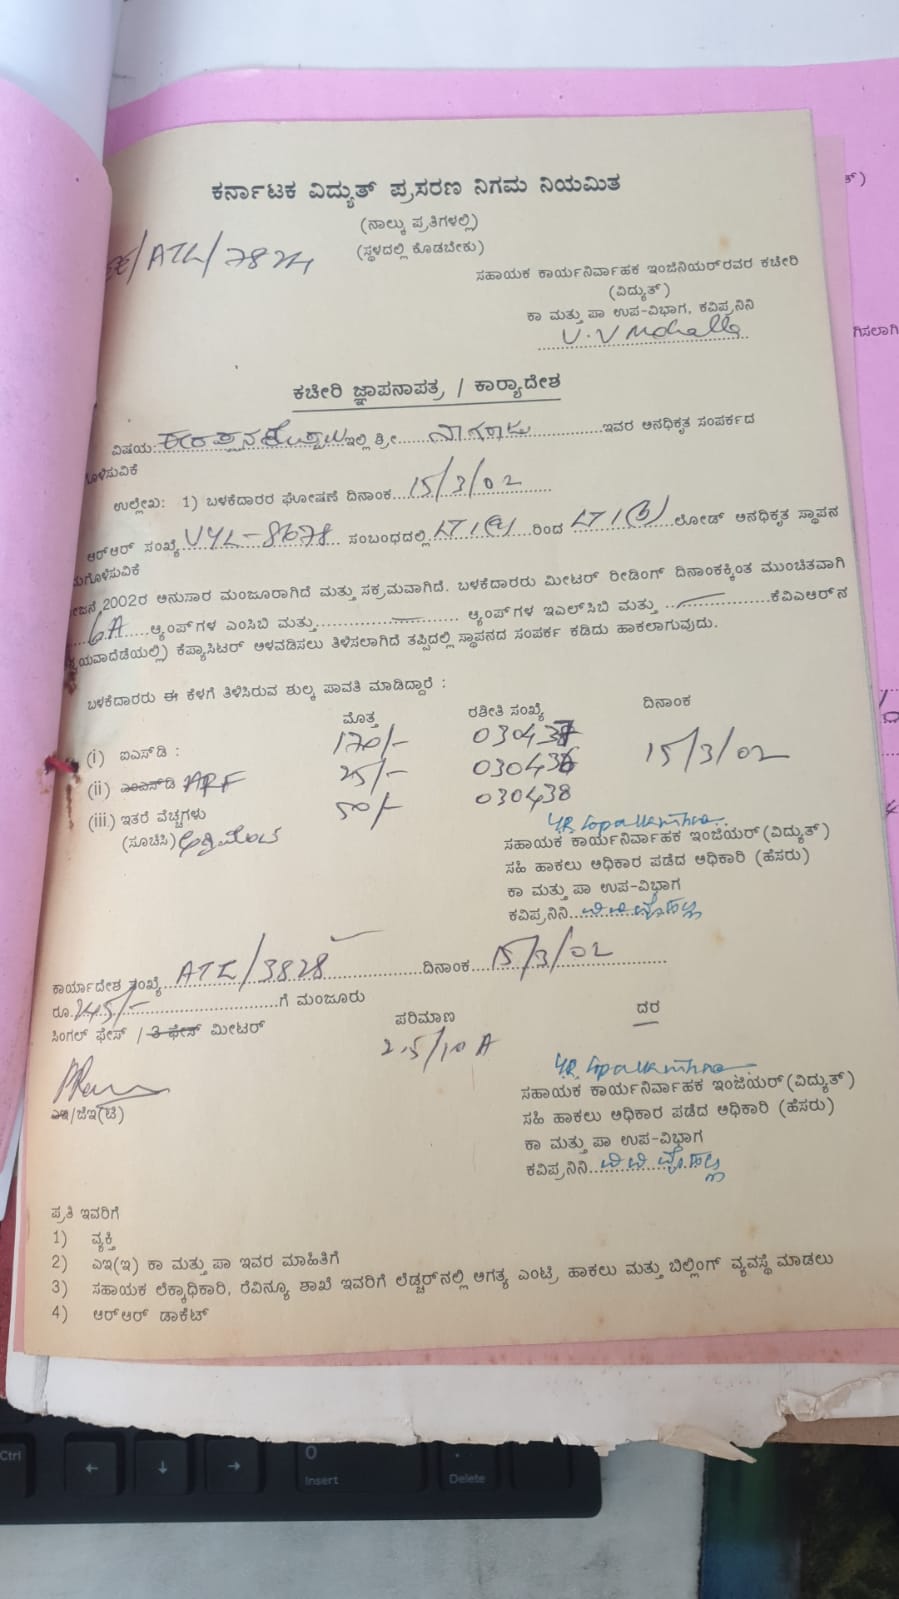 ಕರ್ನಾಟಕ ವಿದ್ಯುತ್ ಪ್ರಸರಣ ನಿಗಮ ನಿಯಮಿತ
(ನಾಲ್ಕು ಪ್ರತಿಗಳಲ್ಲಿ)
(ಸ್ಥಳದಲ್ಲಿ ಕೊಡಬೇಕು)
/ATL/7824
ಸಹಾಯಕ ಕಾರ್ಯನಿರ್ವಾಹಕ ಇಂಜಿನಿಯರ್‌ರವರ ಕಚೇರಿ
(ವಿದ್ಯುತ್)
ಕಾ ಮತ್ತು ಪಾ ಉಪ-ವಿಭಾಗ, ಕವಿಪ್ರನಿನಿ
V.V Mohalla
ಕಚೇರಿ ಜ್ಞಾಪನಾಪತ್ರ / ಕಾರ‍್ಯಾದೇಶ
ವಿಷಯ: ಇಲ್ಲಿ ಶ್ರೀ ನಾಗರಾಜು ಇವರ ಅನಧಿಕೃತ ಸಂಪರ್ಕದ
ಗೊಳಿಸುವಿಕೆ
ಉಲ್ಲೇಖ: 1) ಬಳಕೆದಾರರ ಘೋಷಣೆ ದಿನಾಂಕ 15/3/02
ಆರ್‌ಆರ್ ಸಂಖ್ಯೆ VYL-8678 ಸಂಬಂಧದಲ್ಲಿ LT 1(a) ರಿಂದ LT 1(b) ಲೋಡ್ ಅನಧಿಕೃತ ಸ್ಥಾಪನ
ಮಗೊಳಿಸುವಿಕೆ
ಜನೆ 2002ರ ಅನುಸಾರ ಮಂಜೂರಾಗಿದೆ ಮತ್ತು ಸಕ್ರಮವಾಗಿದೆ. ಬಳಕೆದಾರರು ಮೀಟರ್ ರೀಡಿಂಗ್ ದಿನಾಂಕಕ್ಕಿಂತ ಮುಂಚಿತವಾಗಿ
6A ಆ್ಯಂಪ್‌ಗಳ ಎಂಸಿಬಿ ಮತ್ತು ಆ್ಯಂಪ್‌ಗಳ ಇಎಲ್‌ಸಿಬಿ ಮತ್ತು ಕೆವಿಎಆರ್‌ನ
ಯವಾದೆಡೆಯಲ್ಲಿ) ಕೆಪ್ಯಾಸಿಟರ್ ಅಳವಡಿಸಲು ತಿಳಿಸಲಾಗಿದೆ ತಪ್ಪಿದಲ್ಲಿ ಸ್ಥಾಪನದ ಸಂಪರ್ಕ ಕಡಿದು ಹಾಕಲಾಗುವುದು.
ಬಳಕೆದಾರರು ಈ ಕೆಳಗೆ ತಿಳಿಸಿರುವ ಶುಲ್ಕ ಪಾವತಿ ಮಾಡಿದ್ದಾರೆ :
ಮೊತ್ತ ರಶೀತಿ ಸಂಖ್ಯೆ ದಿನಾಂಕ
(i) ಐಎಸ್‌ಡಿ : 170/- 030437 15/3/02
(ii) ಎಂಎಸ್‌ಡಿ ARF 25/- 030436
(iii) ಇತರೆ ವೆಚ್ಚಗಳು 50/- 030438
(ಸೂಚಿಸಿ)
ಸಹಾಯಕ ಕಾರ್ಯನಿರ್ವಾಹಕ ಇಂಜಿಯರ್(ವಿದ್ಯುತ್)
ಸಹಿ ಹಾಕಲು ಅಧಿಕಾರ ಪಡೆದ ಅಧಿಕಾರಿ (ಹೆಸರು)
ಕಾ ಮತ್ತು ಪಾ ಉಪ-ವಿಭಾಗ
ಕವಿಪ್ರನಿನಿ ವಿ ವಿ ಮೊಹಲ್ಲ
ಕಾರ್ಯಾದೇಶ ಸಂಖ್ಯೆ ATL/3828 ದಿನಾಂಕ 15/3/02
ರೂ. 245/- ಗೆ ಮಂಜೂರು
ಸಿಂಗಲ್ ಫೇಸ್ / 3 ಫೇಸ್ ಮೀಟರ್ ಪರಿಮಾಣ ದರ
2.5/10 A
ಎಇ/ಜೆಇ(ಟಿ)
ಸಹಾಯಕ ಕಾರ್ಯನಿರ್ವಾಹಕ ಇಂಜಿಯರ್(ವಿದ್ಯುತ್)
ಸಹಿ ಹಾಕಲು ಅಧಿಕಾರ ಪಡೆದ ಅಧಿಕಾರಿ (ಹೆಸರು)
ಕಾ ಮತ್ತು ಪಾ ಉಪ-ವಿಭಾಗ
ಕವಿಪ್ರನಿನಿ ವಿ ವಿ ಮೊಹಲ್ಲ
ಪ್ರತಿ ಇವರಿಗೆ
1) ವ್ಯಕ್ತಿ
2) ಎಇ(ಇ) ಕಾ ಮತ್ತು ಪಾ ಇವರ ಮಾಹಿತಿಗೆ
3) ಸಹಾಯಕ ಲೆಕ್ಕಾಧಿಕಾರಿ, ರೆವಿನ್ಯೂ ಶಾಖೆ ಇವರಿಗೆ ಲೆಡ್ಜರ್‌ನಲ್ಲಿ ಅಗತ್ಯ ಎಂಟ್ರಿ ಹಾಕಲು ಮತ್ತು ಬಿಲ್ಲಿಂಗ್ ವ್ಯವಸ್ಥೆ ಮಾಡಲು
4) ಆರ್‌ಆರ್ ಡಾಕೆಟ್
Ctrl ← ↓ → 0 Insert . Delete